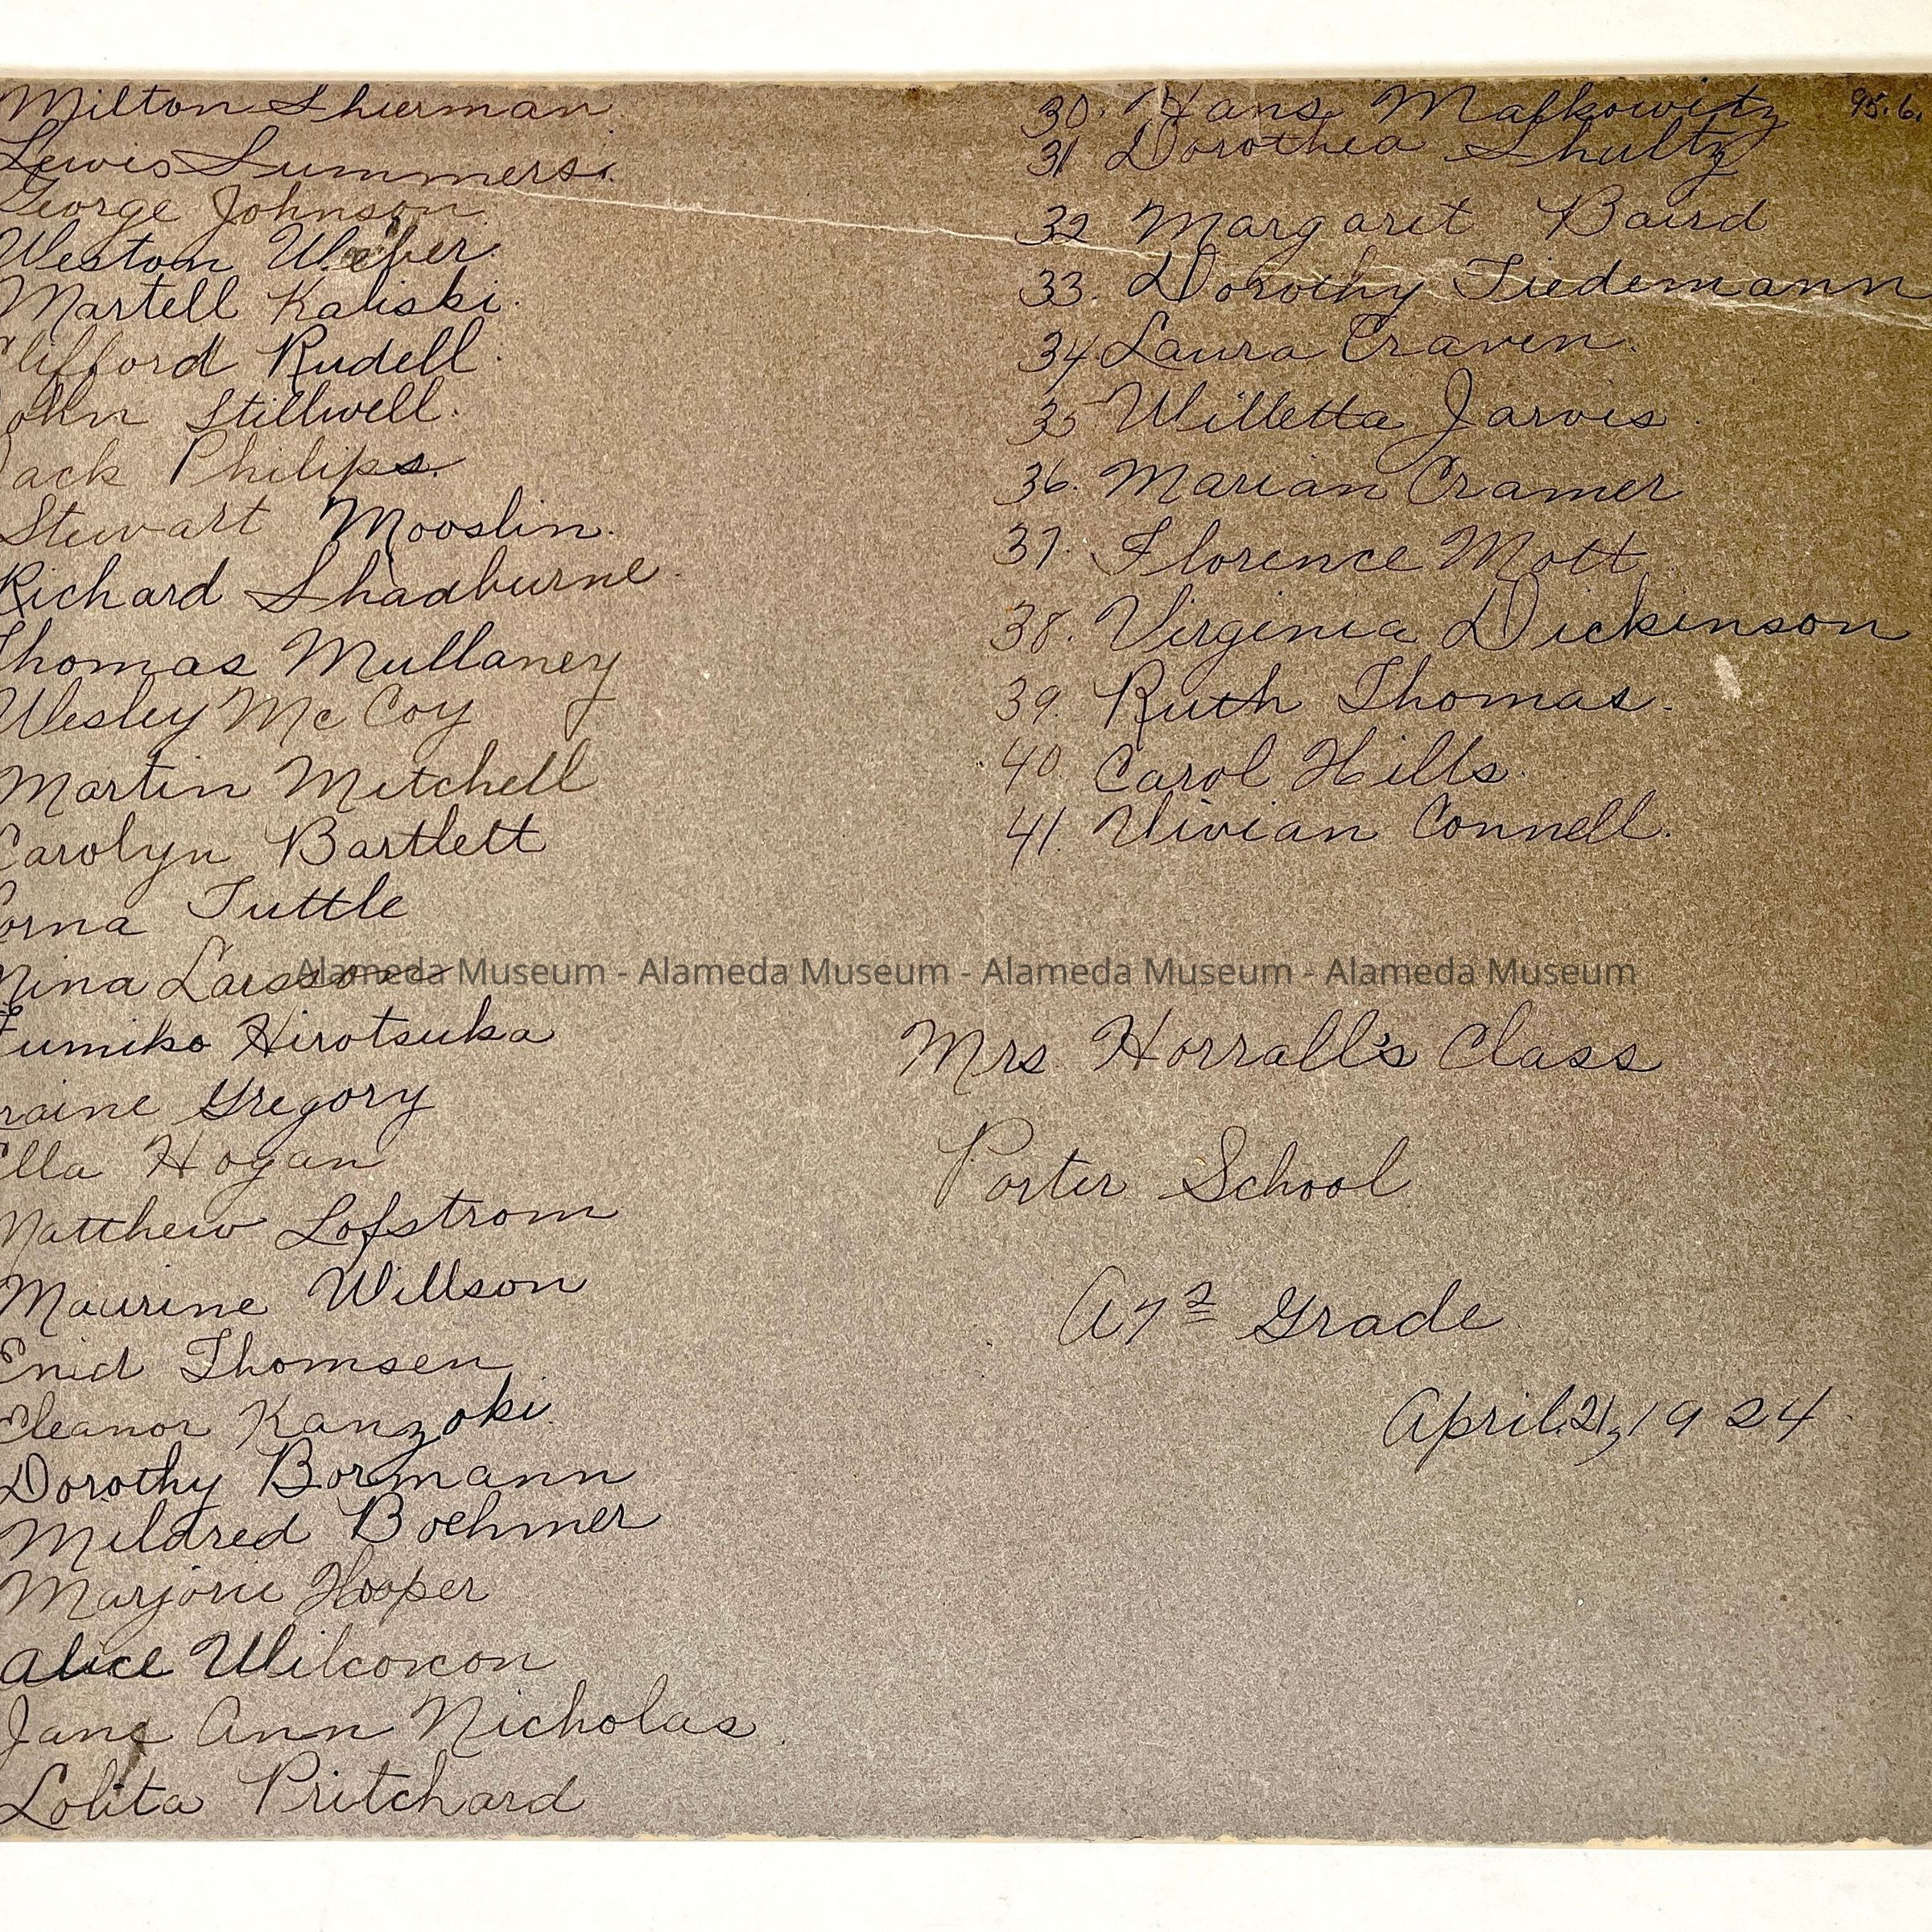 Milton Shierman
Lewis Summers.
George Johnson
Weston Weber.
Martell Kaliski.
Clifford Rudell.
John Stillwell.
Jack Philips.
Stewart Mooslin.
Richard Shadburne.
Thomas Mullaney
Wesley McCoy
Martin Mitchell
Carolyn Bartlett
orna Tuttle
Nina Larsson
Fumiko Hirotsuka
raine Gregory
Ella Hogan
Matthew Lofstrom
Maurine Willson
Enid Thomsen
Eleanor Kanzoki.
Dorothy Bormann
Mildred Boehmer
Marjorie Hooper
Alice Wilcoxon
Jane Ann Nicholas
Lolita Pritchard
30. Hans Malkowitz
95.6.
31 Dorothea Shultz
32 Margaret Baird
33. Dorothy Tiedemann
34 Laura Craven.
35 Willetta Jarvis.
36. Marian Cramer
37. Florence Mott.
38. Virginia Dickinson
39. Ruth Thomas.
40. Carol Hills.
41. Vivian Connell.
Alameda Museum - Alameda Museum - Alameda Museum - Alameda Museum
Mrs. Horrall's Class
Porter School
Grade
April 21, 1924